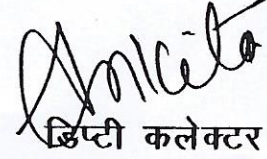 Ankita
डिप्टी कलेक्टर